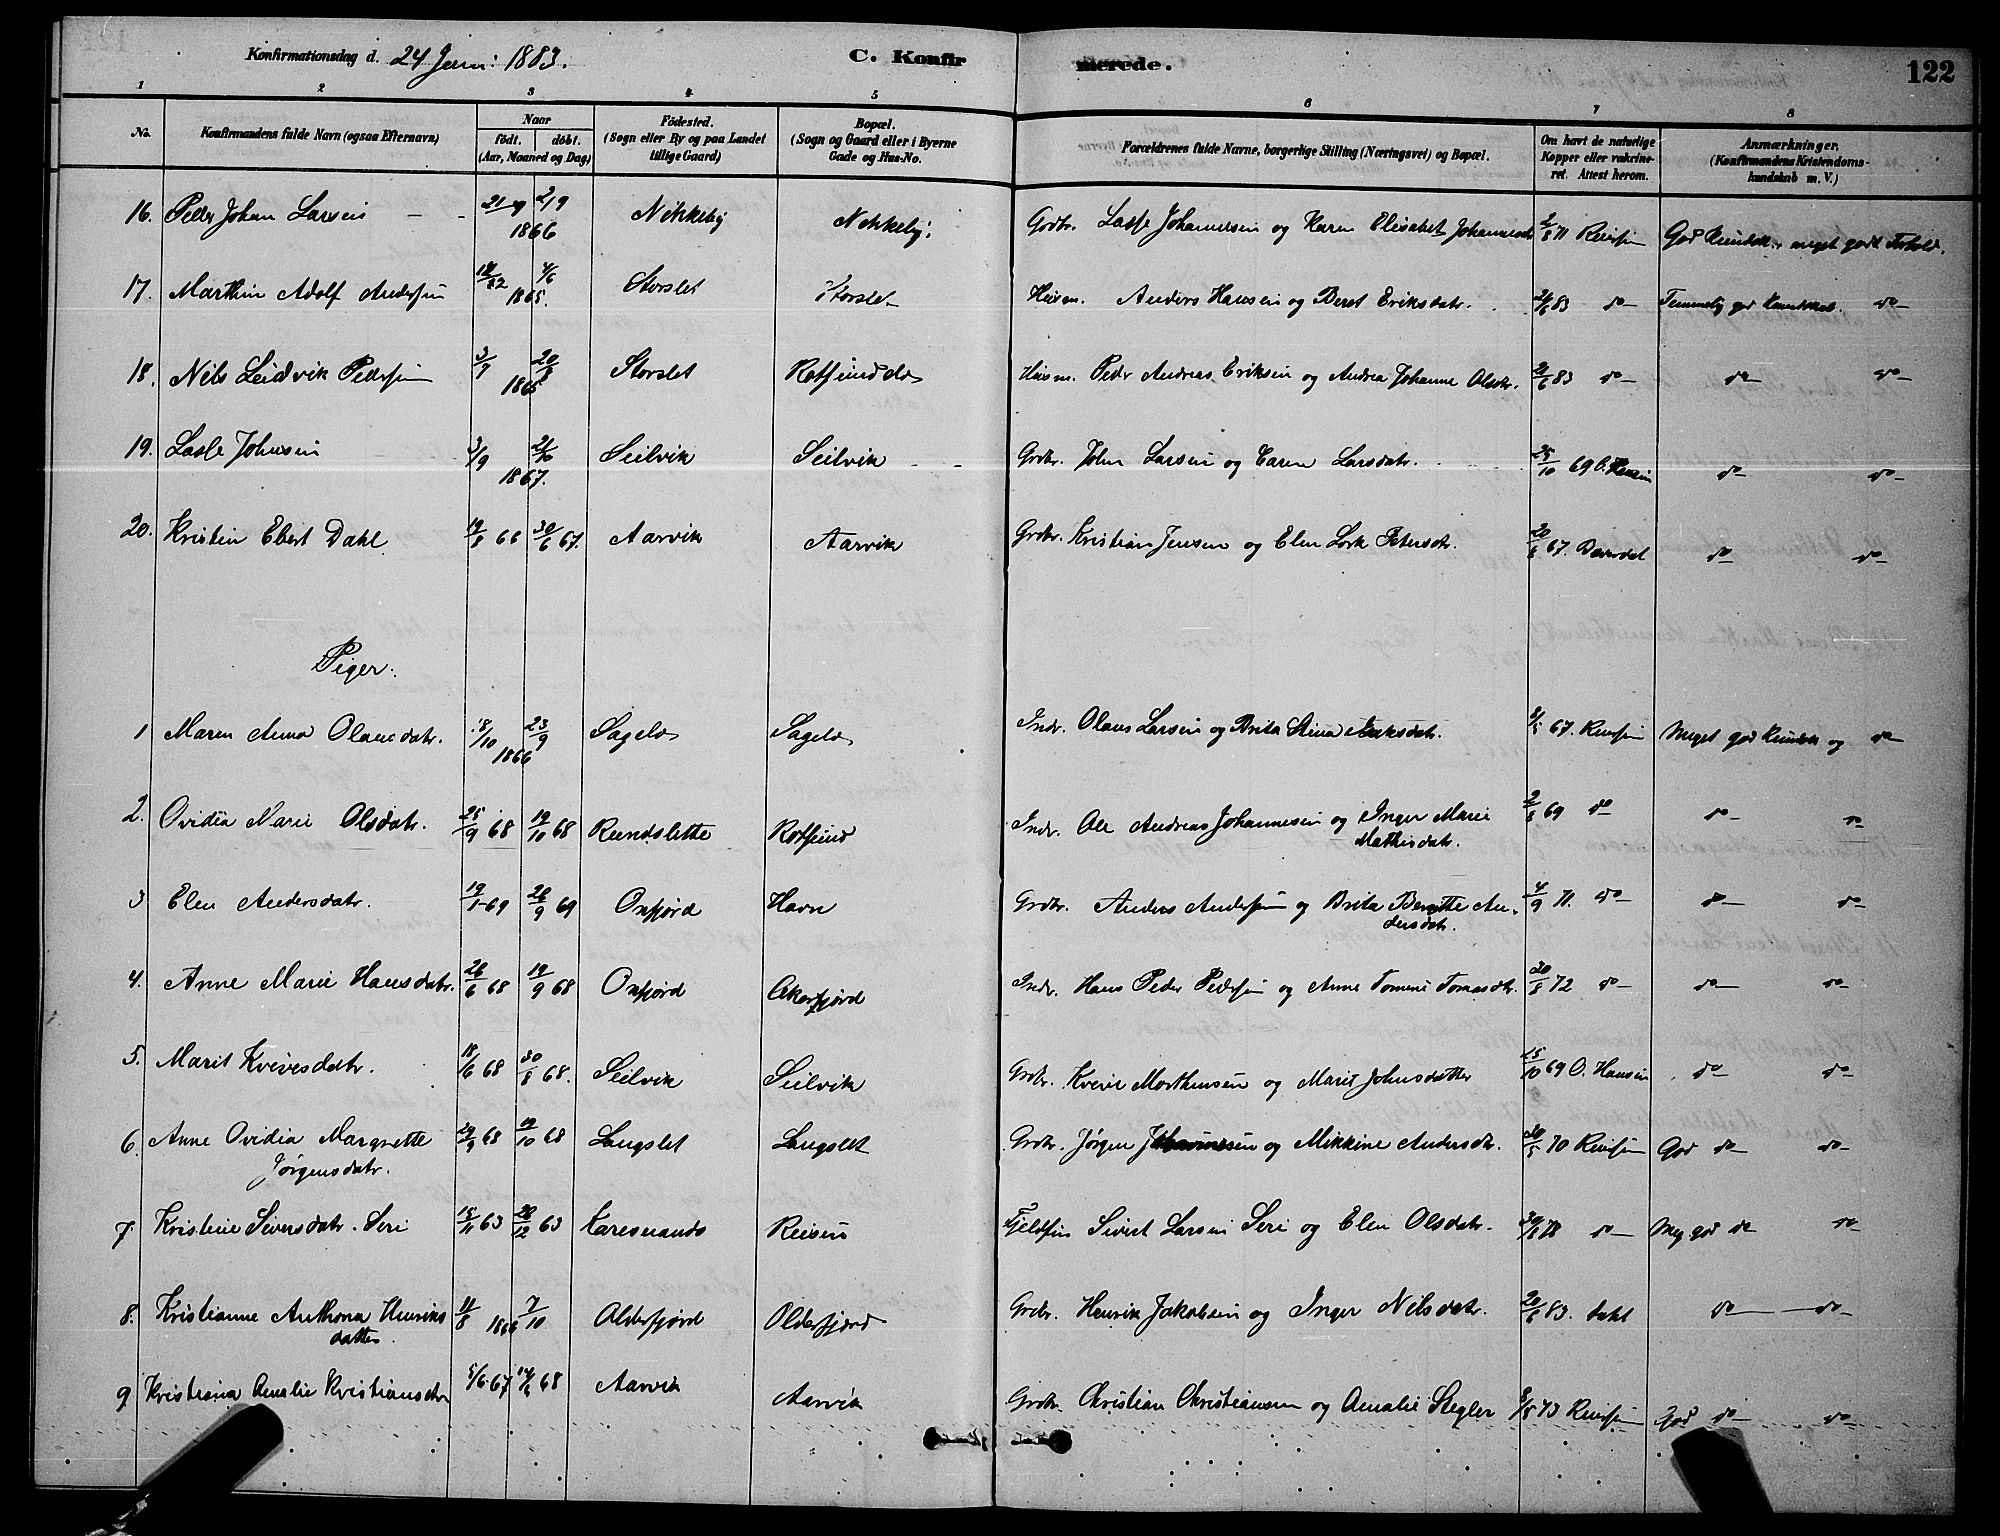 Konfirmationsdag d. 24 Juni 1883. C. Konfirmerede. 122
1 2 3 4 5 6 7 8
No. Konfirmandens fulde Navn (ogsaa Efternavn) Naar født. døbt. (Aar, Maaned og Dag) Fødested. (Sogn eller By og paa Landet tillige Gaard) Bopæl. (Sogn og Gaard eller i Byerne Gade og Hus-No. Forældrenes fulde Navne, borgerlige Stilling (Næringsvei) og Bopæl. Om havt de naturlige Kopper eller vakcineret. Attest herom. Anmærkninger. (Konfirmandens Kristendomskundskab m. V.)
16. Peder Johan Larsen 21/7 2/9 1866 Nikkeby Nikkeby. Grdbr. Lasse Johannesen og Karen Elisabet Johannesdtr 2/8 71 God Kundsk. meget godt Forhold.
17. Marthin Adolf Andersen 4/6 1865. Storslet Storslet Husm. Anders Hansen og Beret Eriksdatr. 24/6 83 do Temmelig god Kundskab. do
18. Nils Leidvik Pedersen 3/7 20/8 1865 Storslet Rotsunddo Husm. Peder Andreas Eriksen og Andrea Johanne Olsdtr. 2/6 83 do do do
19. Lasse Johnsen 3/9 1867. Seilvik Seilvik Grdbr. John Larsen og Caren Larsdatr. 25/10 69 O. Hansen do do
20. Kristen Ebert Dahl 19/8 66 30/6 67. Aarvik Aarvik Grdbr. Kristian Jensen og Elen Lork Petersdtr. 67. do do
Piger.
1 Maren Anna Olausdatr. 18/10 23/9 1866 Sagelv Sagelv Indr. Olaus Larsen og Brita Stina 67. Meget god Kundsk og do
2. Ovidia Marie Olsdatr. 25/9 68 19/10 68 Rundslette Rotsund Indr. Ole Andreas Johannesen og Inger Marie Mathisdatr. 2/8 69 do do do
3 Elen Andersdatr. 19/1 69 26/9 69 Oxfjord Havn Grdbr. Anders Andersen og Brita Beritte Andersdatr. 4/9 71. do do do
4. Anne Marie Hansdatr. 26/6 68 19/9 68 Oxfjord Okerfjord Indr. Hans Peder Pedersen og Anne Tomine Tomasdtr. 20/8 72 do do do
5. Marit Kvivesdatr. 18/6 68 30/8 68. Seilvik Seilvik Grdbr. Kvive Morthensen og Marit Johnsdatter 25/10 69 O. Hansen do do
6. Anne Ovidia Margrette Jørgensdatr. 29/9 68 19/10 68 Langslet Langslet Grdbr. Jørgen Johannesen og Mikkine Andersdtr. 70 God do do
7. Kristine Siversdatr. Seri 15/11 63 28/12 63 Karesuando Reisen Fjeldfin Sivert Larsen Seri og Elen Olsdatr. 78 do Meg. god do do
8. Kristianne Anthona Henriksdatter 11/8 1866 7/10 Olderfjord Olderfjord Grdbr. Henrik Jakobsen og Inger Nilsdatr. 20/6 83. Dahl do do
9 Kristiana Amalie Kristiansdtr 5/6 67 14/6 68 Aarvik Aarvik Grdbr. Christian Christiansen og Amalie Stegler 8/8 73 God do do